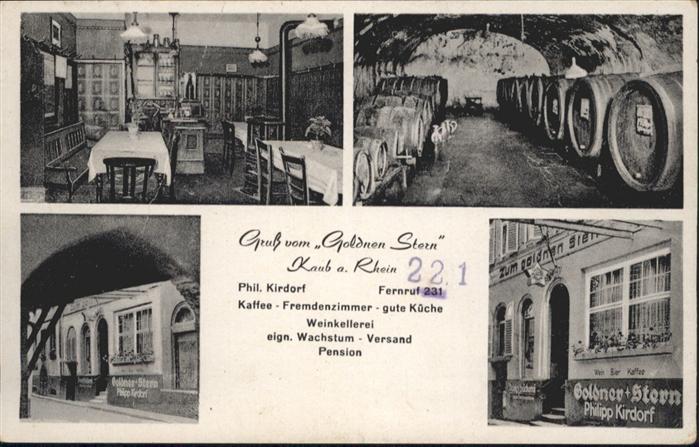 Gruß vom „Goldnen Stern"
Kaub a. Rhein
Phil. Kirdorf Fernruf 231 221
Kaffee - Fremdenzimmer - gute Küche
Weinkellerei
eign. Wachstum - Versand
Pension
Goldner + Stern
Philipp Kirdorf
Zum goldnen Stern
Wein Bier Kaffee
Goldner + Stern
Philipp Kirdorf